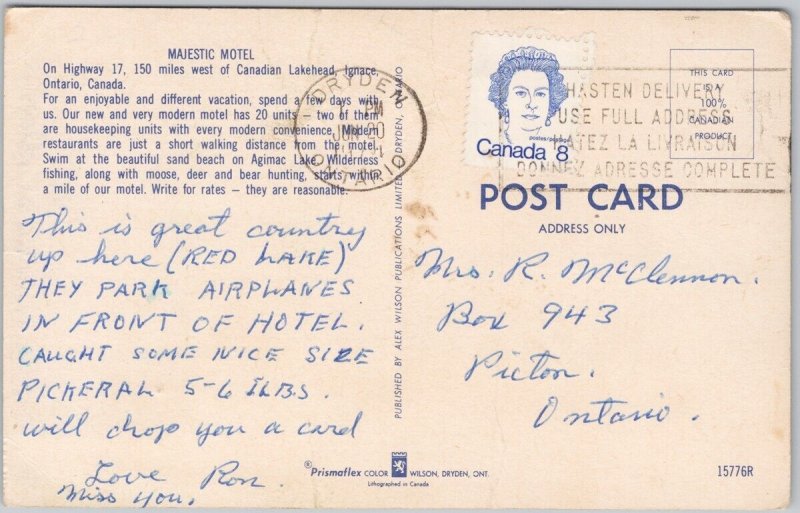 MAJESTIC MOTEL
On Highway 17, 150 miles west of Canadian Lakehead, Ignace,
Ontario, Canada.
For an enjoyable and different vacation, spend a few days with
us. Our new and very modern motel has 20 units — two of them
are housekeeping units with every modern convenience. Modern
restaurants are just a short walking distance from the motel.
Swim at the beautiful sand beach on Agimac Lake. Wilderness
fishing, along with moose, deer and bear hunting, starts within
a mile of our motel. Write for rates — they are reasonable.
This is great country
up here (RED LAKE)
THEY PARK AIRPLANES
IN FRONT OF HOTEL.
CAUGHT SOME NICE SIZE
PICKERAL 5-6 ILBS.
will drop you a card
Love Ron.
Miss You.
PUBLISHED BY ALEX WILSON PUBLICATIONS LIMITED, DRYDEN, ONTARIO
DRYDEN
PM
JUN
ONTARIO
postes/postage
Canada 8
HASTEN DELIVERY
USE FULL ADDRESS
HATEZ LA LIVRAISON
DONNEZ ADRESSE COMPLETE
THIS CARD
IS A
100%
CANADIAN
PRODUCT
POST CARD
ADDRESS ONLY
Mrs. R. McClennon.
Box 943
Picton.
Ontario.
®Prismaflex COLOR WILSON, DRYDEN, ONT.
Lithographed in Canada
15776R